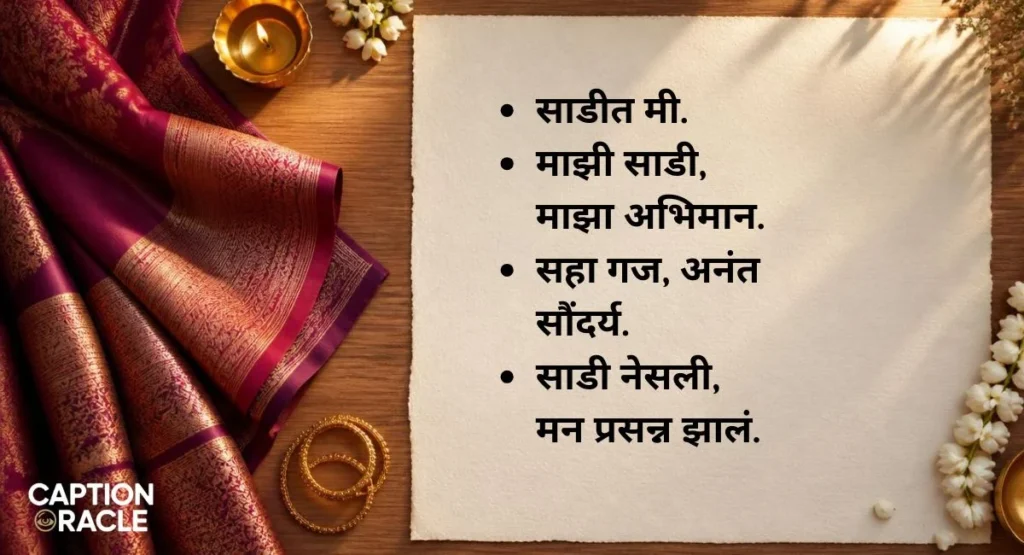 • साडीत मी.
• माझी साडी,
माझा अभिमान.
• सहा गज, अनंत
सौंदर्य.
• साडी नेसली,
मन प्रसन्न झालं.
CAPTION
ORACLE